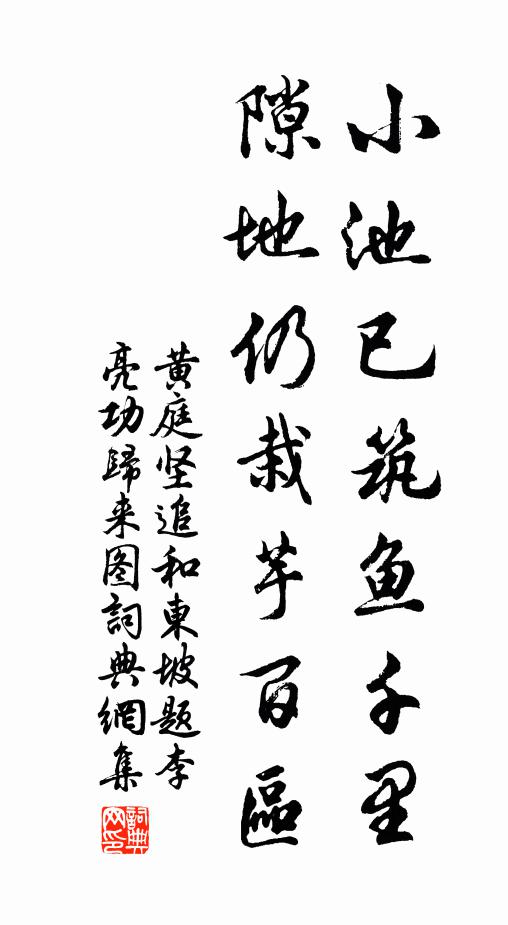 小池已筑鱼千里
隙地仍栽芋百區
黄庭坚追和東坡题李
亮功歸来图詞典網集
詞典网印